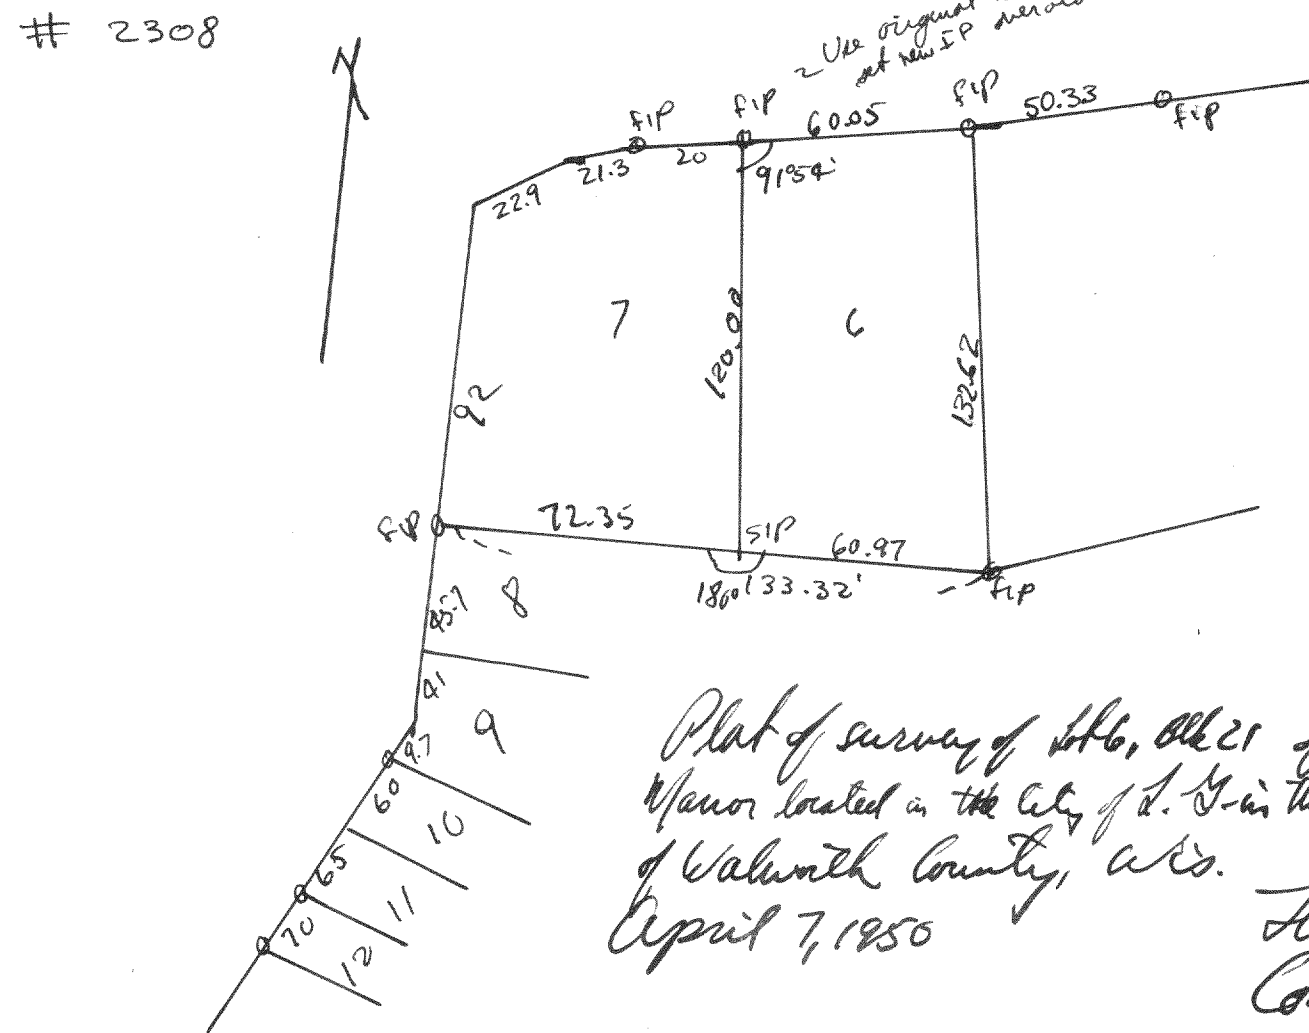 # 2308
N
Use original
set new IP
fip
fip
60.05
fip
50.33
fip
22.9
21.3
20
91°54'
7
120.00
6
132.62
92
fip
72.35
SIP
60.97
180° 133.32'
fip
8
45.7
41
9
9.7
60
10
65
11
70
12
Plat of survey of Lot 6, Blk 21 of
Manor located in the City of L. G. in th
of Walworth County, Wis.
April 7, 1950
Co